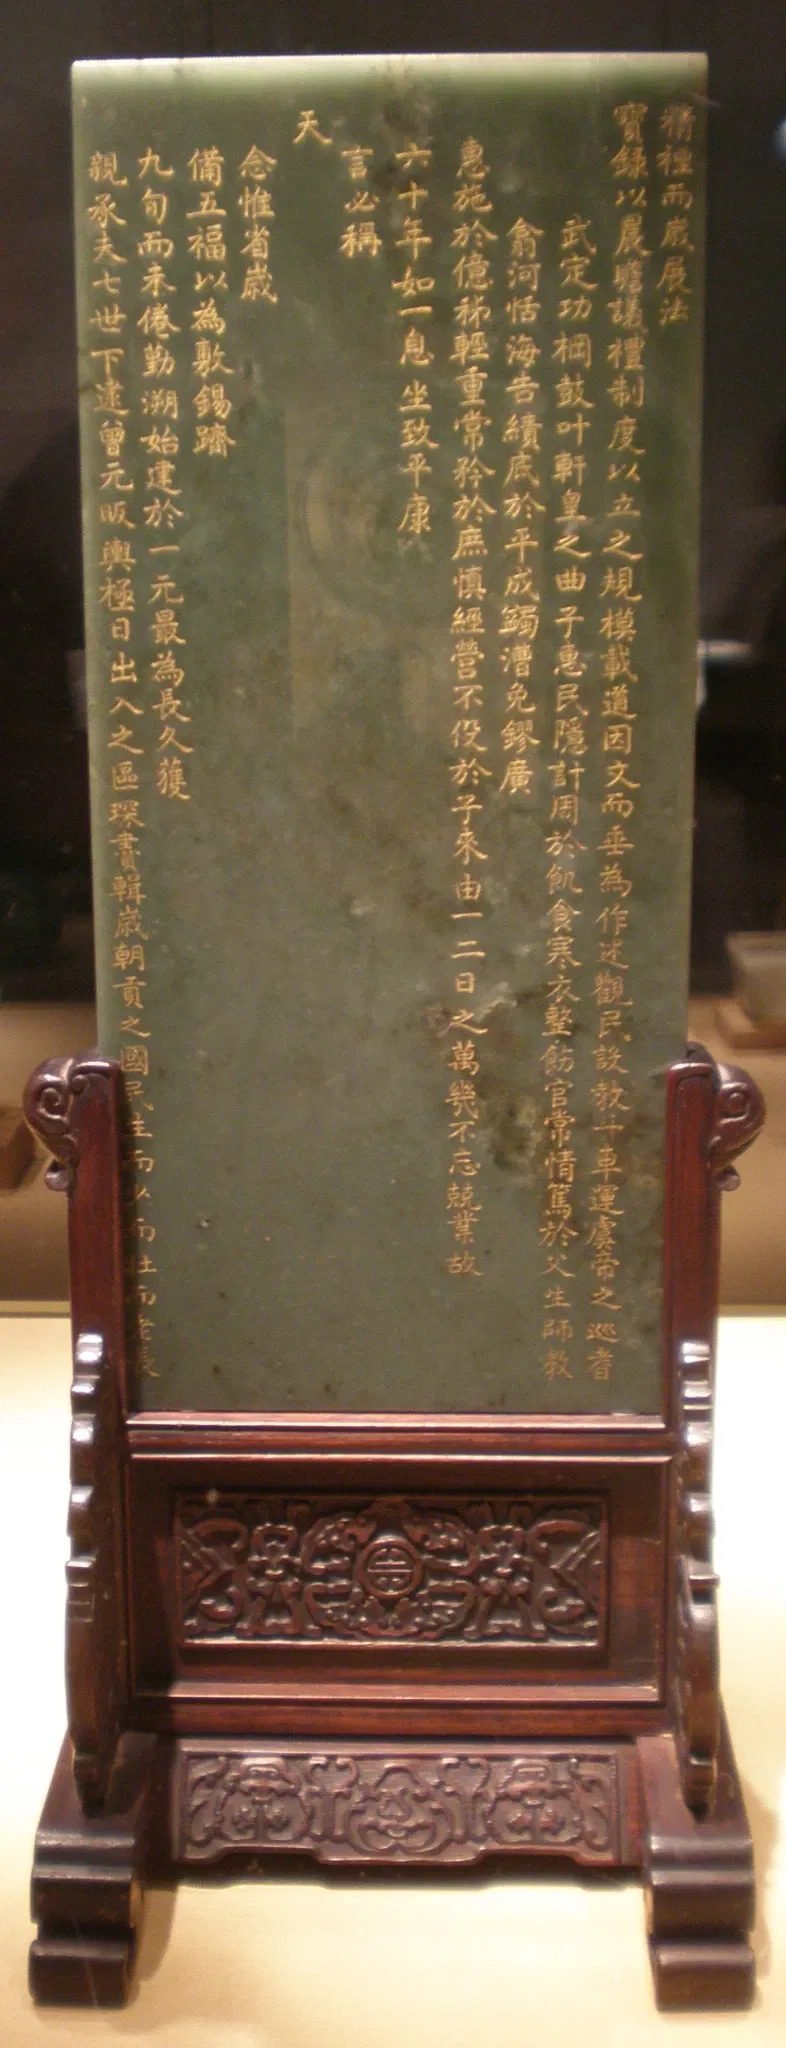 精禋而歲展法
寶錄以晨瞻議禮制度以立之規模載道因文而垂為作述觀民設教斗車運虞帝之巡耆
武定功棡鼓叶軒皇之曲子惠民隱計周於飢食寒衣整飭官常情篤於父生師教
翕河恬海告績底於平成蠲漕免鏐廣
惠施於億秭輕重常矜於庶慎經營不伇於子來由一二日之萬幾不忘兢業故
六十年如一息坐致平康
言必稱
天
念惟省歲
備五福以為敷錫躋
九旬而未倦勤溯始建於一元最為長久獲
親承夫七世下逮曾元昄輿極日出入之區琛賮輯歲朝貢之國民生而少而壯而老長